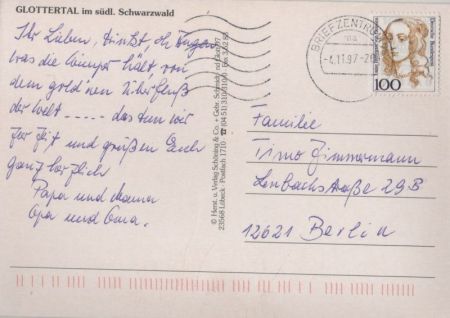 GLOTTERTAL im südl. Schwarzwald
Ihr Lieben, trinkt, oh Augen
was die Wimper hält, von
dem gold'nen Überfluß
der Welt ----- das tun wir
zur Zeit und grüßen Euch
ganz herzlich
Papa und Mama
Opa und Oma.
BRIEFZENTRUM
-4.11.97-
Deutsche Bundespost
100
Familie
Timo Zimmermann
Lenbachstraße 29B
12621 Berlin
© Herst. u. Verlag Schöning & Co. + Gebr. Schmidt
23568 Lübeck · Postfach 1710 · ☎ (04 51) 310